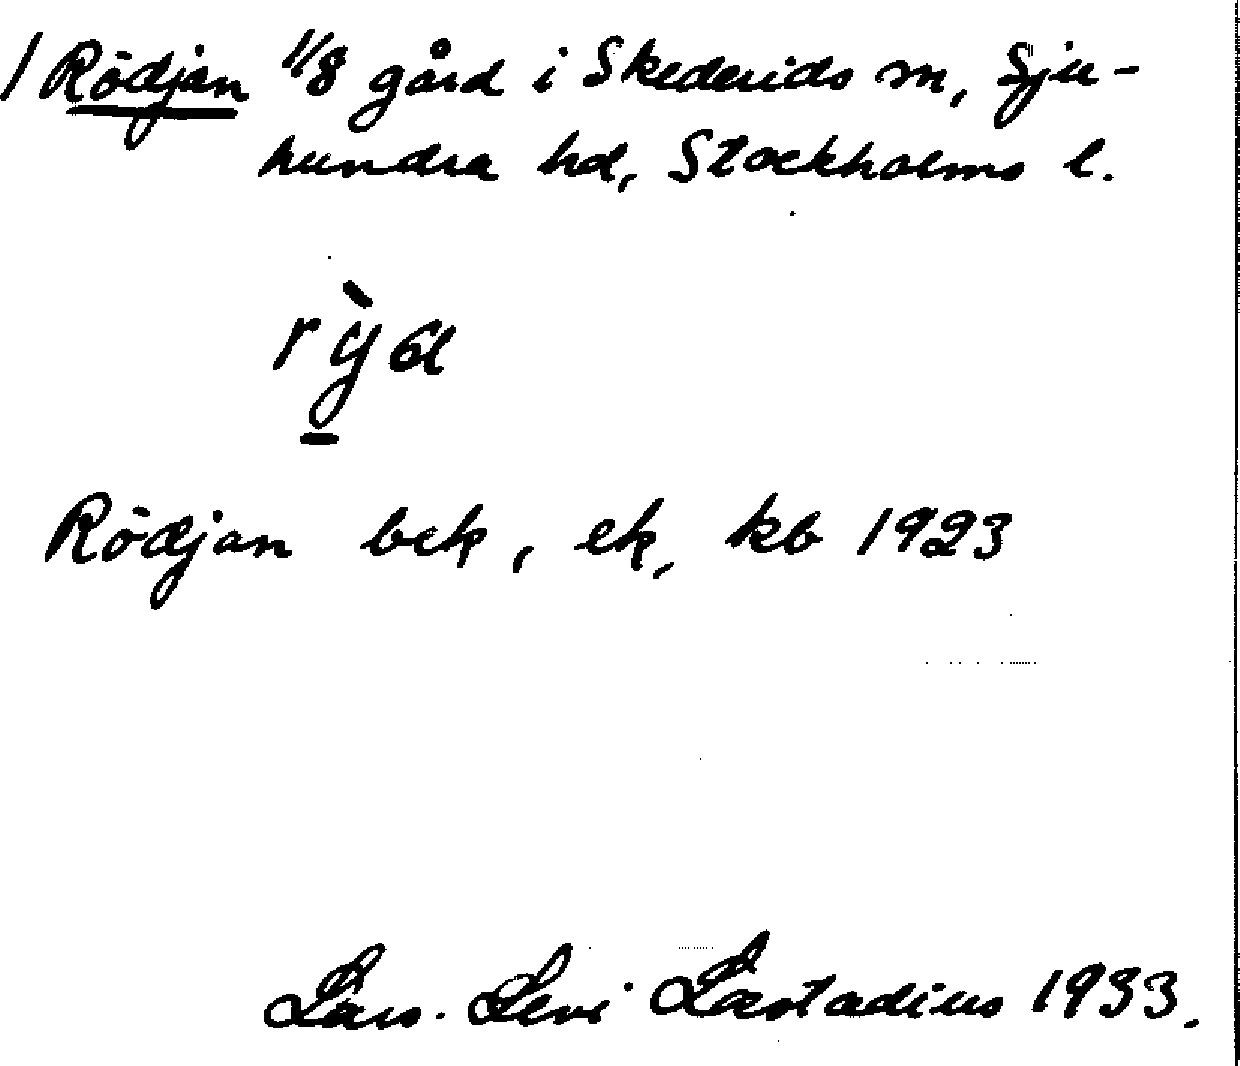 / Rödjan 1/8 gård i Skederids sn, Sju-
hundra hd, Stockholms l.
rỳ̱a
Rödjan bek, ek, kb 1923
Lars-Levi Læstadius 1933.